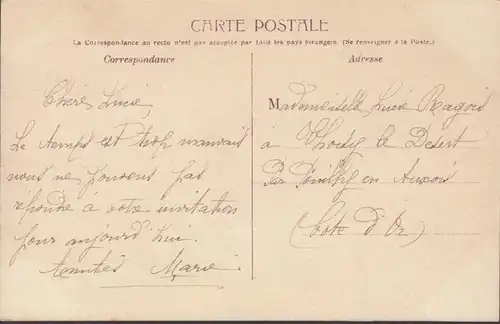 CARTE POSTALE
La Correspondance au recto n'est pas acceptée par tous les pays étrangers (Se renseigner à la Poste.)
Correspondance
Adresse
Chère Lucie,
Le temps est trop mauvais
nous ne pouvons pas
répondre a votre invitation
pour aujourd'hui.
Amitiés Marie
Mademoiselle Lucie Ragois
à Thoisy le Desert
Par Pouilly en Auxois
(Cote d'Or)